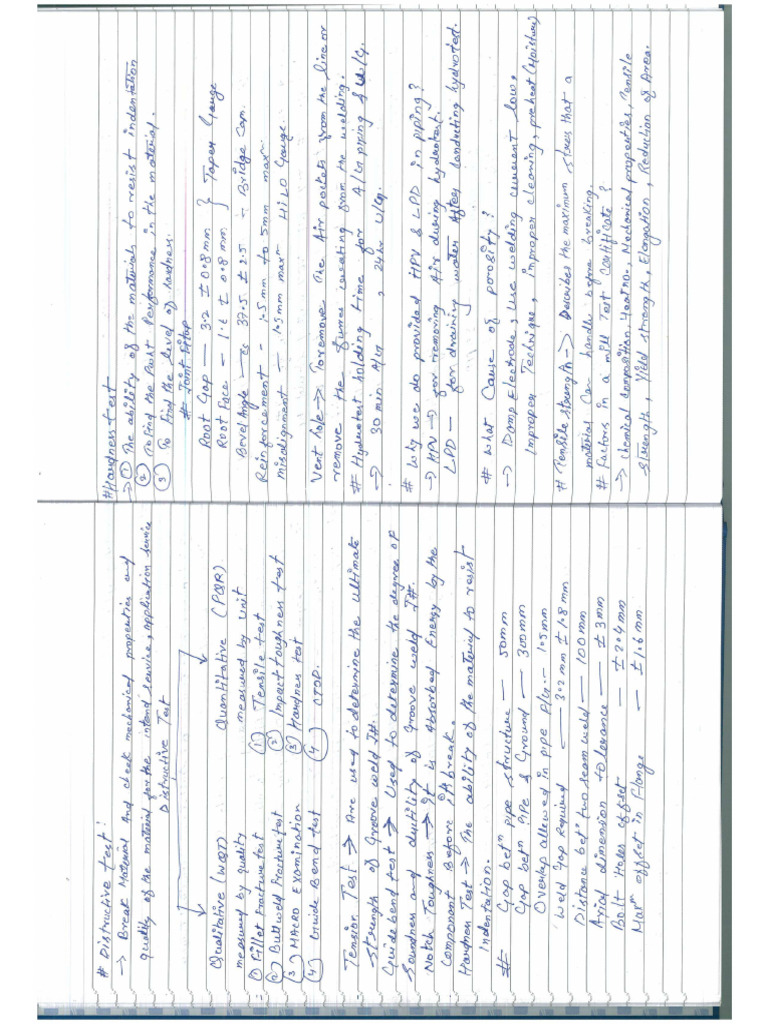 # Distructive test:
→ Break Material And check mechanical properties and
quality of the material for the intend service, application service
Distructive Test
Qualitative (WQT) Quantitative (PQR)
measured by quality measured by unit
① Fillet fracture test ① Tensile test
② Buttweld Fracture test ② Impact toughness test
③ MACRO Examination ③ Hardness test
④ Guide Bend test ④ CTOD.
Tension Test → Are used to determine the ultimate
strength of Groove weld Jt.
Guide bend test → Used to determine the degree of
Soundness and ductility of Groove weld Jt.
Notch Toughness → It is Absorbed Energy by the
component Before it break.
Hardness Test → The ability of the material to resist
indentation.
# Gap betn pipe structure — 50mm
Gap betn Pipe & Ground — 300mm
Overlap allowed in pipe — 1.5mm
Weld Gap Required — 3.2 mm ± 1.8 mm
Distance betn two seam weld — 100mm
Axial dimension tolerance — ± 3mm
Bolt Holes offset — ± 2.4 mm
Maxm offset in Flange — ± 1.6 mm
# Hardness test
→ ① The ability of the materials to resist indentation
② To find the Performance in the material.
③ To find the level of hardness.
# Joint Fitup
Root Gap — 3.2 ± 0.8mm } Taper Gauge
Root Face — 1.6 ± 0.8mm }
Bevel Angle — 37.5 ± 2.5 — Bridge Cam.
Reinforcement — 1.5mm to 5mm maxm
misalignment — 1.5mm maxm HiLO Gauge.
Vent hole → To remove The Air pockets from the line or
remove the fumes creating from the welding.
# Hydrotest holding time for A/Gn piping & U/G.
→ 30 min A/Gn , 24hr U/Gn.
# Why we do provided HPV & LPD in piping?
→ HPV → for removing Air during hydrotest.
LPD — for draining water After conducting hydrotest.
# What Cause of porosity?
→ Damp Electrode, Use welding current low,
Improper Technique, improper cleaning, preheat (Moisture)
# Tensile strength → Describes the maximum stress that a
material can handle before breaking.
# Factors in a mill Test certificate?
→ Chemical composition, Heat no., Mechanical properties, Tensile
strength, Yield strength, Elongation, Reduction of Area.